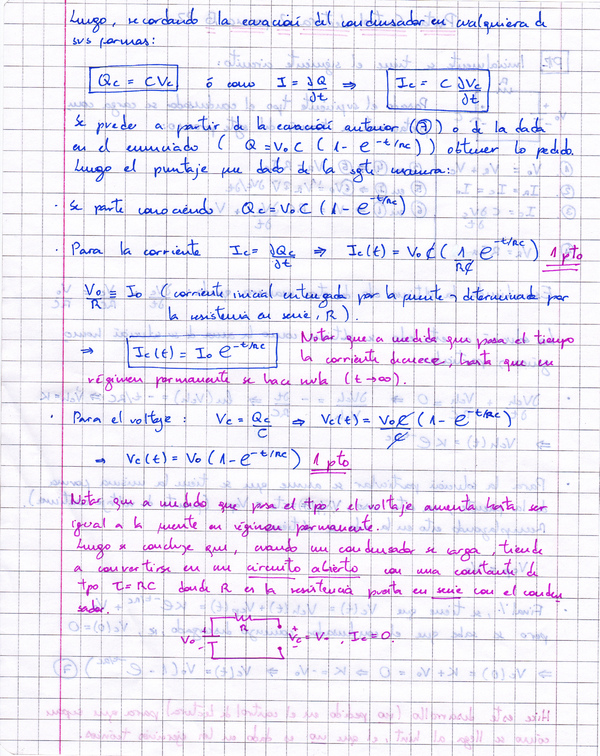 Luego, recordando la ecuación del condensador en cualquiera de
sus formas:
Qc = CVc ó como I = ∂Q/∂t ⇒ Ic = C ∂Vc/∂t
Se puede, a partir de la ecuación anterior (⑦) o de la dada
en el enunciado ( Q = V₀C (1 - e^(-t/RC)) ) obtener lo pedido.
Luego el puntaje fue dado de la sgte manera:
· Se parte conociendo Qc = V₀C (1 - e^(-t/RC))
· Para la corriente Ic = ∂Qc/∂t ⇒ Ic(t) = V₀C (1/RC e^(-t/RC)) 1 pto
V₀/R ≡ I₀ (corriente inicial entregada por la fuente y determinada por
la resistencia en serie, R).
⇒ Ic(t) = I₀ e^(-t/RC) Notar que a medida que pasa el tiempo
la corriente decrece, hasta que en
régimen permanente se hace nula (t→∞).
· Para el voltaje : Vc = Qc/C ⇒ Vc(t) = V₀C/C (1 - e^(-t/RC))
⇒ Vc(t) = V₀ (1 - e^(-t/RC)) 1 pto
Notar que a medida que pasa el tpo, el voltaje aumenta hasta ser
igual a la fuente en régimen permanente.
Luego se concluye que, cuando un condensador se carga, tiende
a convertirse en un circuito abierto con una constante de
tpo τ = RC donde R es la resistencia puesta en serie con el conden
sador.
R
V₀ + - + Vc = V₀ , Ic = 0.
-